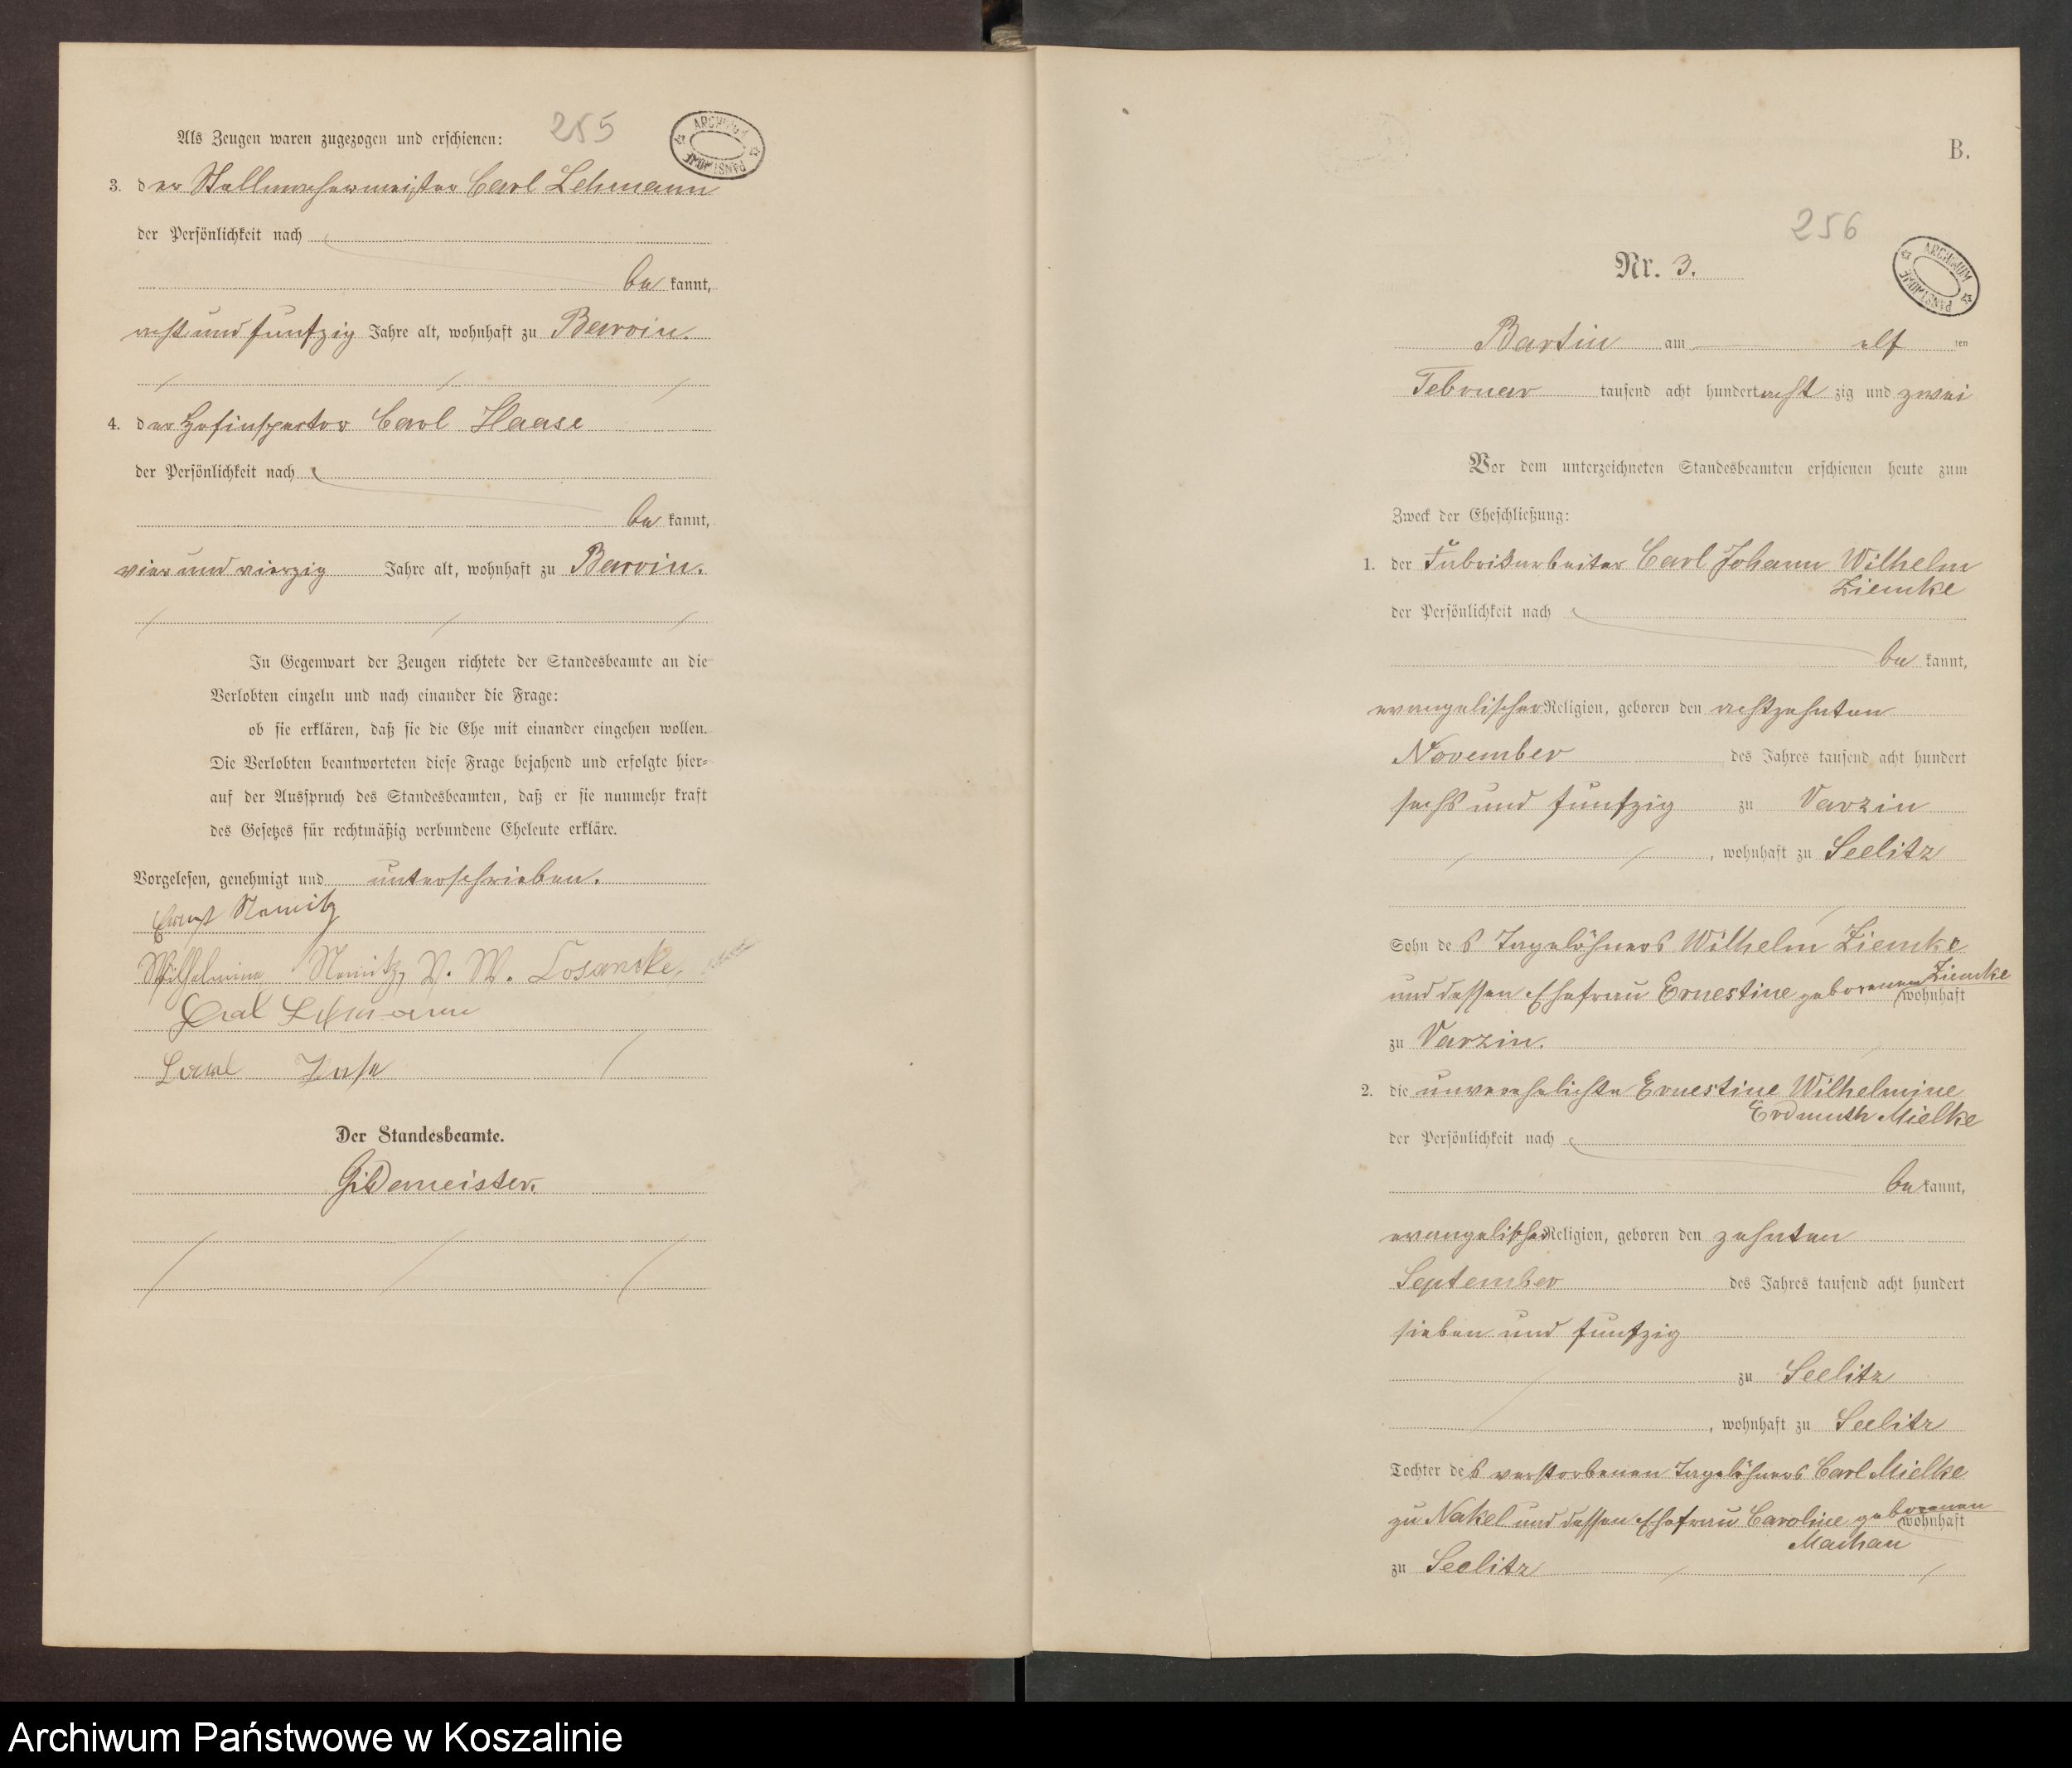 255
ARCHIWUM PAŃSTWOWE
Als Zeugen waren zugezogen und erschienen:
3. der Stellmachermeister Carl Lehmann
der Persönlichkeit nach
be kannt,
acht und funfzig Jahre alt, wohnhaft zu Barvin.
4. der Hofinspector Carl Haase
der Persönlichkeit nach
be kannt,
vier und vierzig Jahre alt, wohnhaft zu Barvin.
In Gegenwart der Zeugen richtete der Standesbeamte an die
Verlobten einzeln und nach einander die Frage:
ob sie erklären, daß sie die Ehe mit einander eingehen wollen.
Die Verlobten beantworteten diese Frage bejahend und erfolgte hier-
auf der Ausspruch des Standesbeamten, daß er sie nunmehr kraft
des Gesetzes für rechtmäßig verbundene Eheleute erkläre.
Vorgelesen, genehmigt und unterschrieben.
Ernst Nemitz
Wilhelmine Nemitz,
Carl Lehmann
Carl Hase
Der Standesbeamte.
Gildemeister.
B.
256
ARCHIWUM PAŃSTWOWE
Nr. 3.
Bartin am elf ten
Februar tausend acht hundert acht zig und zwei
Vor dem unterzeichneten Standesbeamten erschienen heute zum
Zweck der Eheschließung:
1. der Fabrikarbeiter Carl Johann Wilhelm
Ziemke
der Persönlichkeit nach
be kannt,
evangelischer Religion, geboren den achtzehnten
November des Jahres tausend acht hundert
sechs und funfzig zu Varzin
, wohnhaft zu Seelitz
Sohn des Tagelöhners Wilhelm Ziemke
und dessen Ehefrau Ernestine geborenen Ziemke
wohnhaft
zu Varzin.
2. die unverehelichte Ernestine Wilhelmine
Erdmuth Mielke
der Persönlichkeit nach
be kannt,
evangelischer Religion, geboren den zehnten
September des Jahres tausend acht hundert
sieben und funfzig
zu Seelitz
, wohnhaft zu Seelitz
Tochter des verstorbenen Tagelöhners Carl Mielke
zu Nakel und dessen Ehefrau Caroline geborenen
wohnhaft
Machau
zu Seelitz
Archiwum Państwowe w Koszalinie